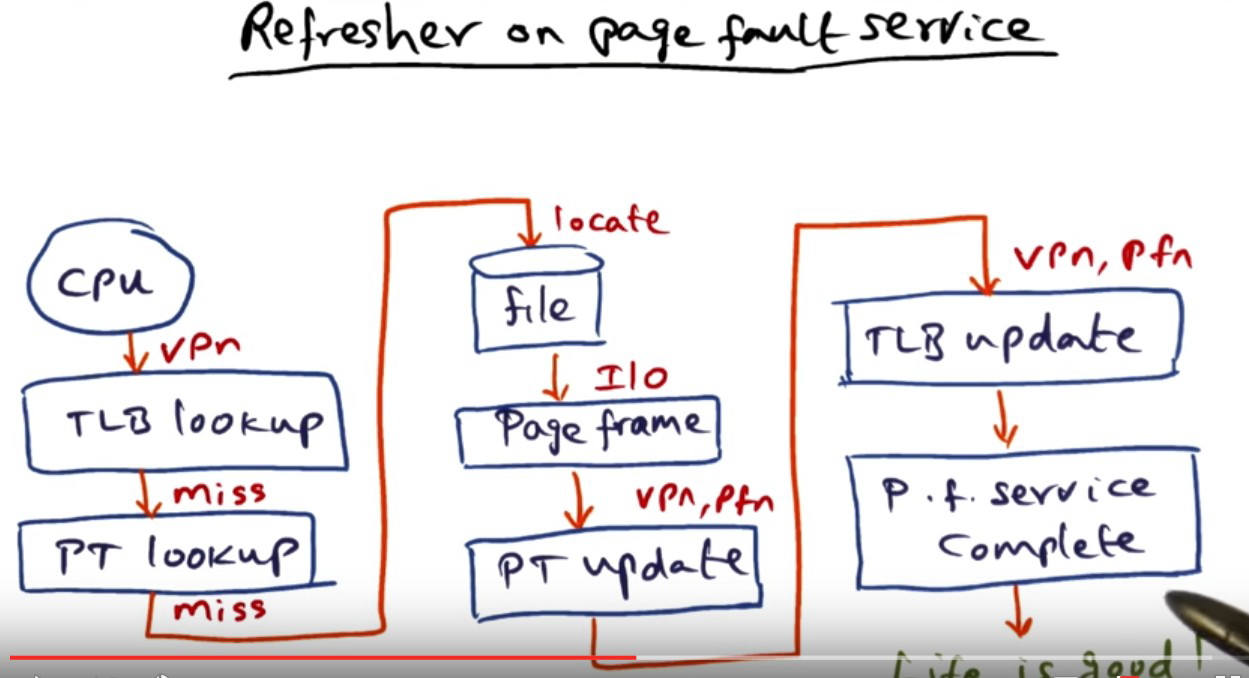 Refresher on page fault service
CPU
VPn
TLB lookup
miss
PT lookup
miss
locate
file
I/O
Page frame
VPn, Pfn
PT update
VPn, Pfn
TLB update
P.f. service
Complete
Life is good!